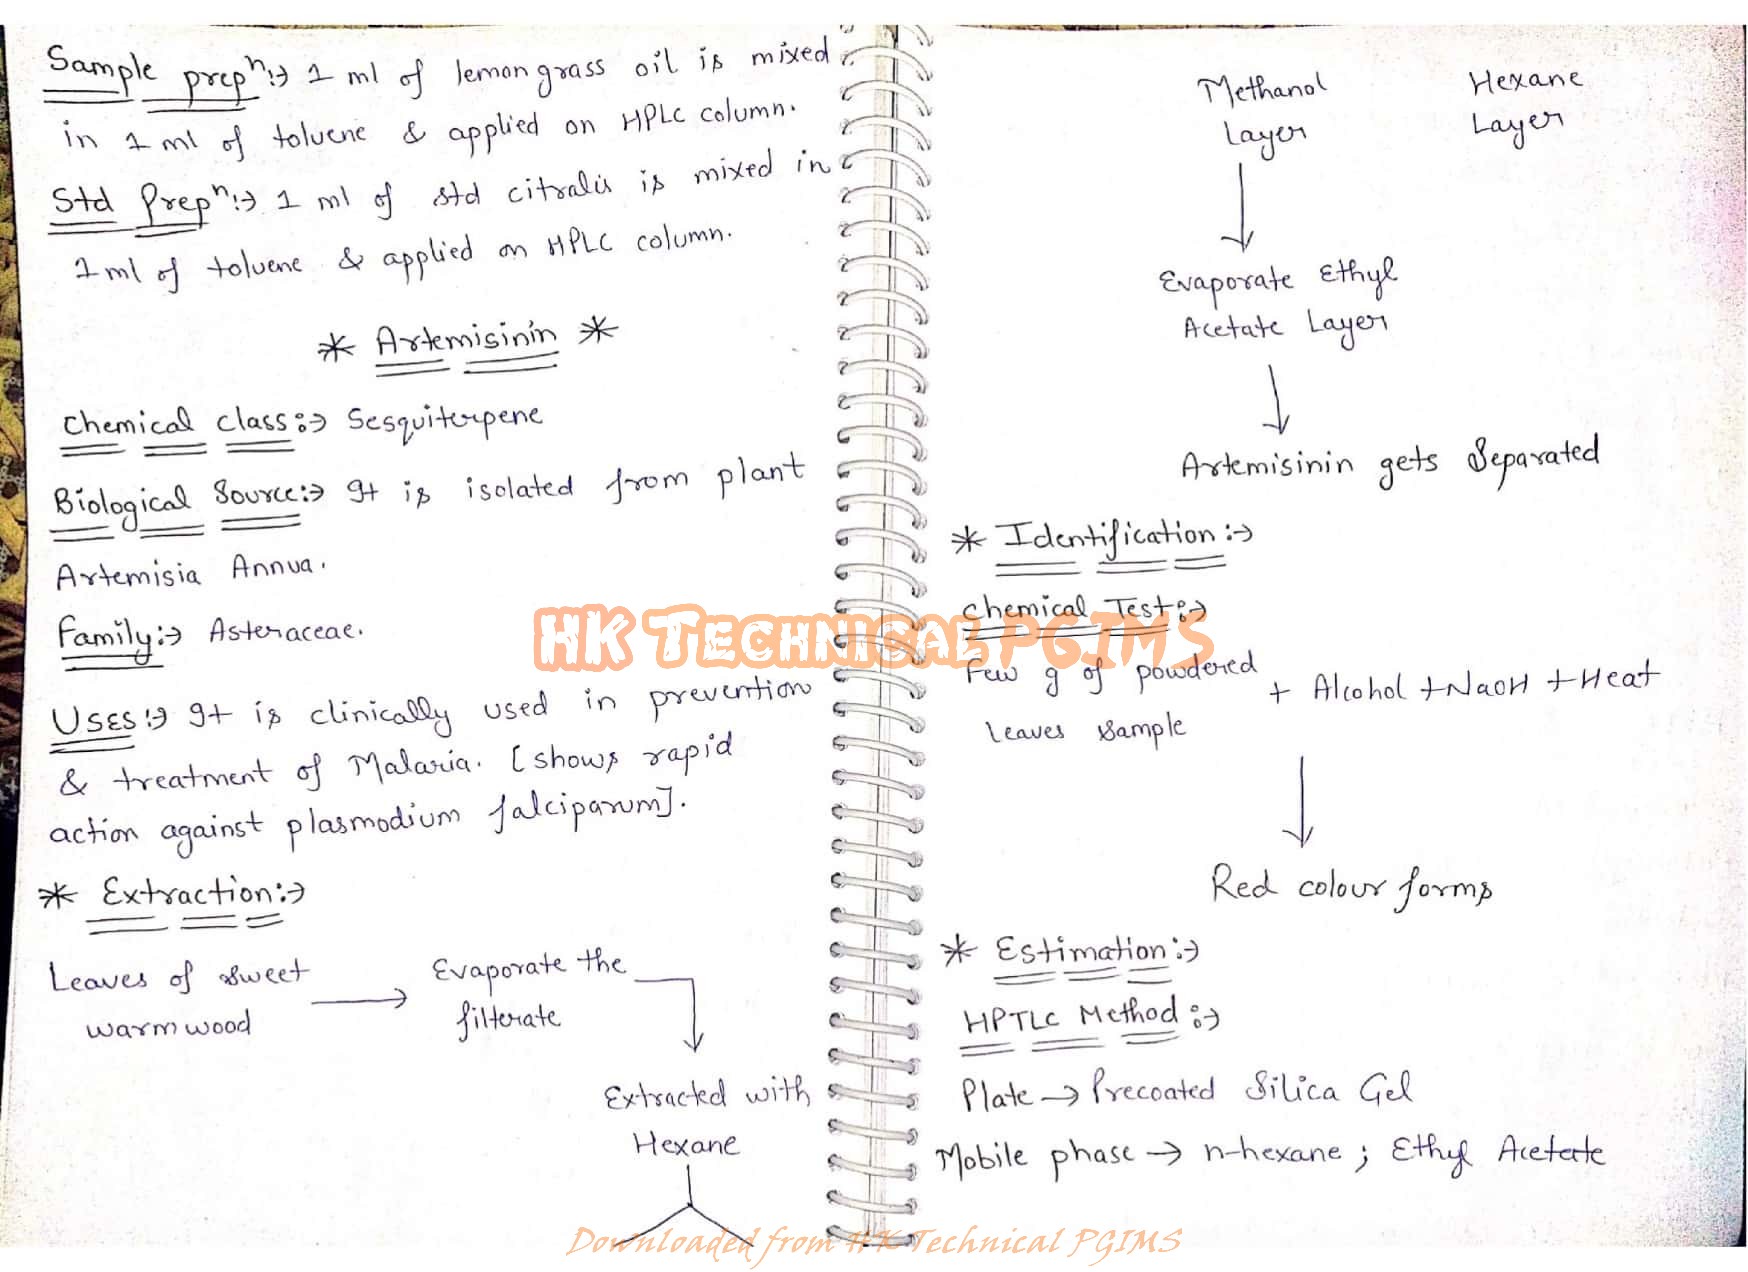 Sample prepⁿ:→ 1 ml of lemongrass oil is mixed
in 1 ml of toluene & applied on HPLC column.
Std Prepⁿ:→ 1 ml of std citralis is mixed in
1 ml of toluene & applied on HPLC column.
* Artemisinin *
Chemical class:→ Sesquiterpene
Biological Source:→ It is isolated from plant
Artemisia Annua.
Family:→ Asteraceae.
Uses:→ It is clinically used in prevention
& treatment of Malaria. [shows rapid
action against plasmodium falciparum].
* Extraction:→
Leaves of sweet
warmwood
→ Evaporate the
filterate
Extracted with
Hexane
Methanol
Layer
Hexane
Layer
Evaporate Ethyl
Acetate Layer
Artemisinin gets Separated
* Identification:→
Chemical Test:→
Few g of powdered
leaves sample
+ Alcohol + NaOH + Heat
Red colour forms
* Estimation:→
HPTLC Method:→
Plate → Precoated Silica Gel
Mobile phase → n-hexane ; Ethyl Acetate
HK Technical PGIMS
Downloaded from HK Technical PGIMS